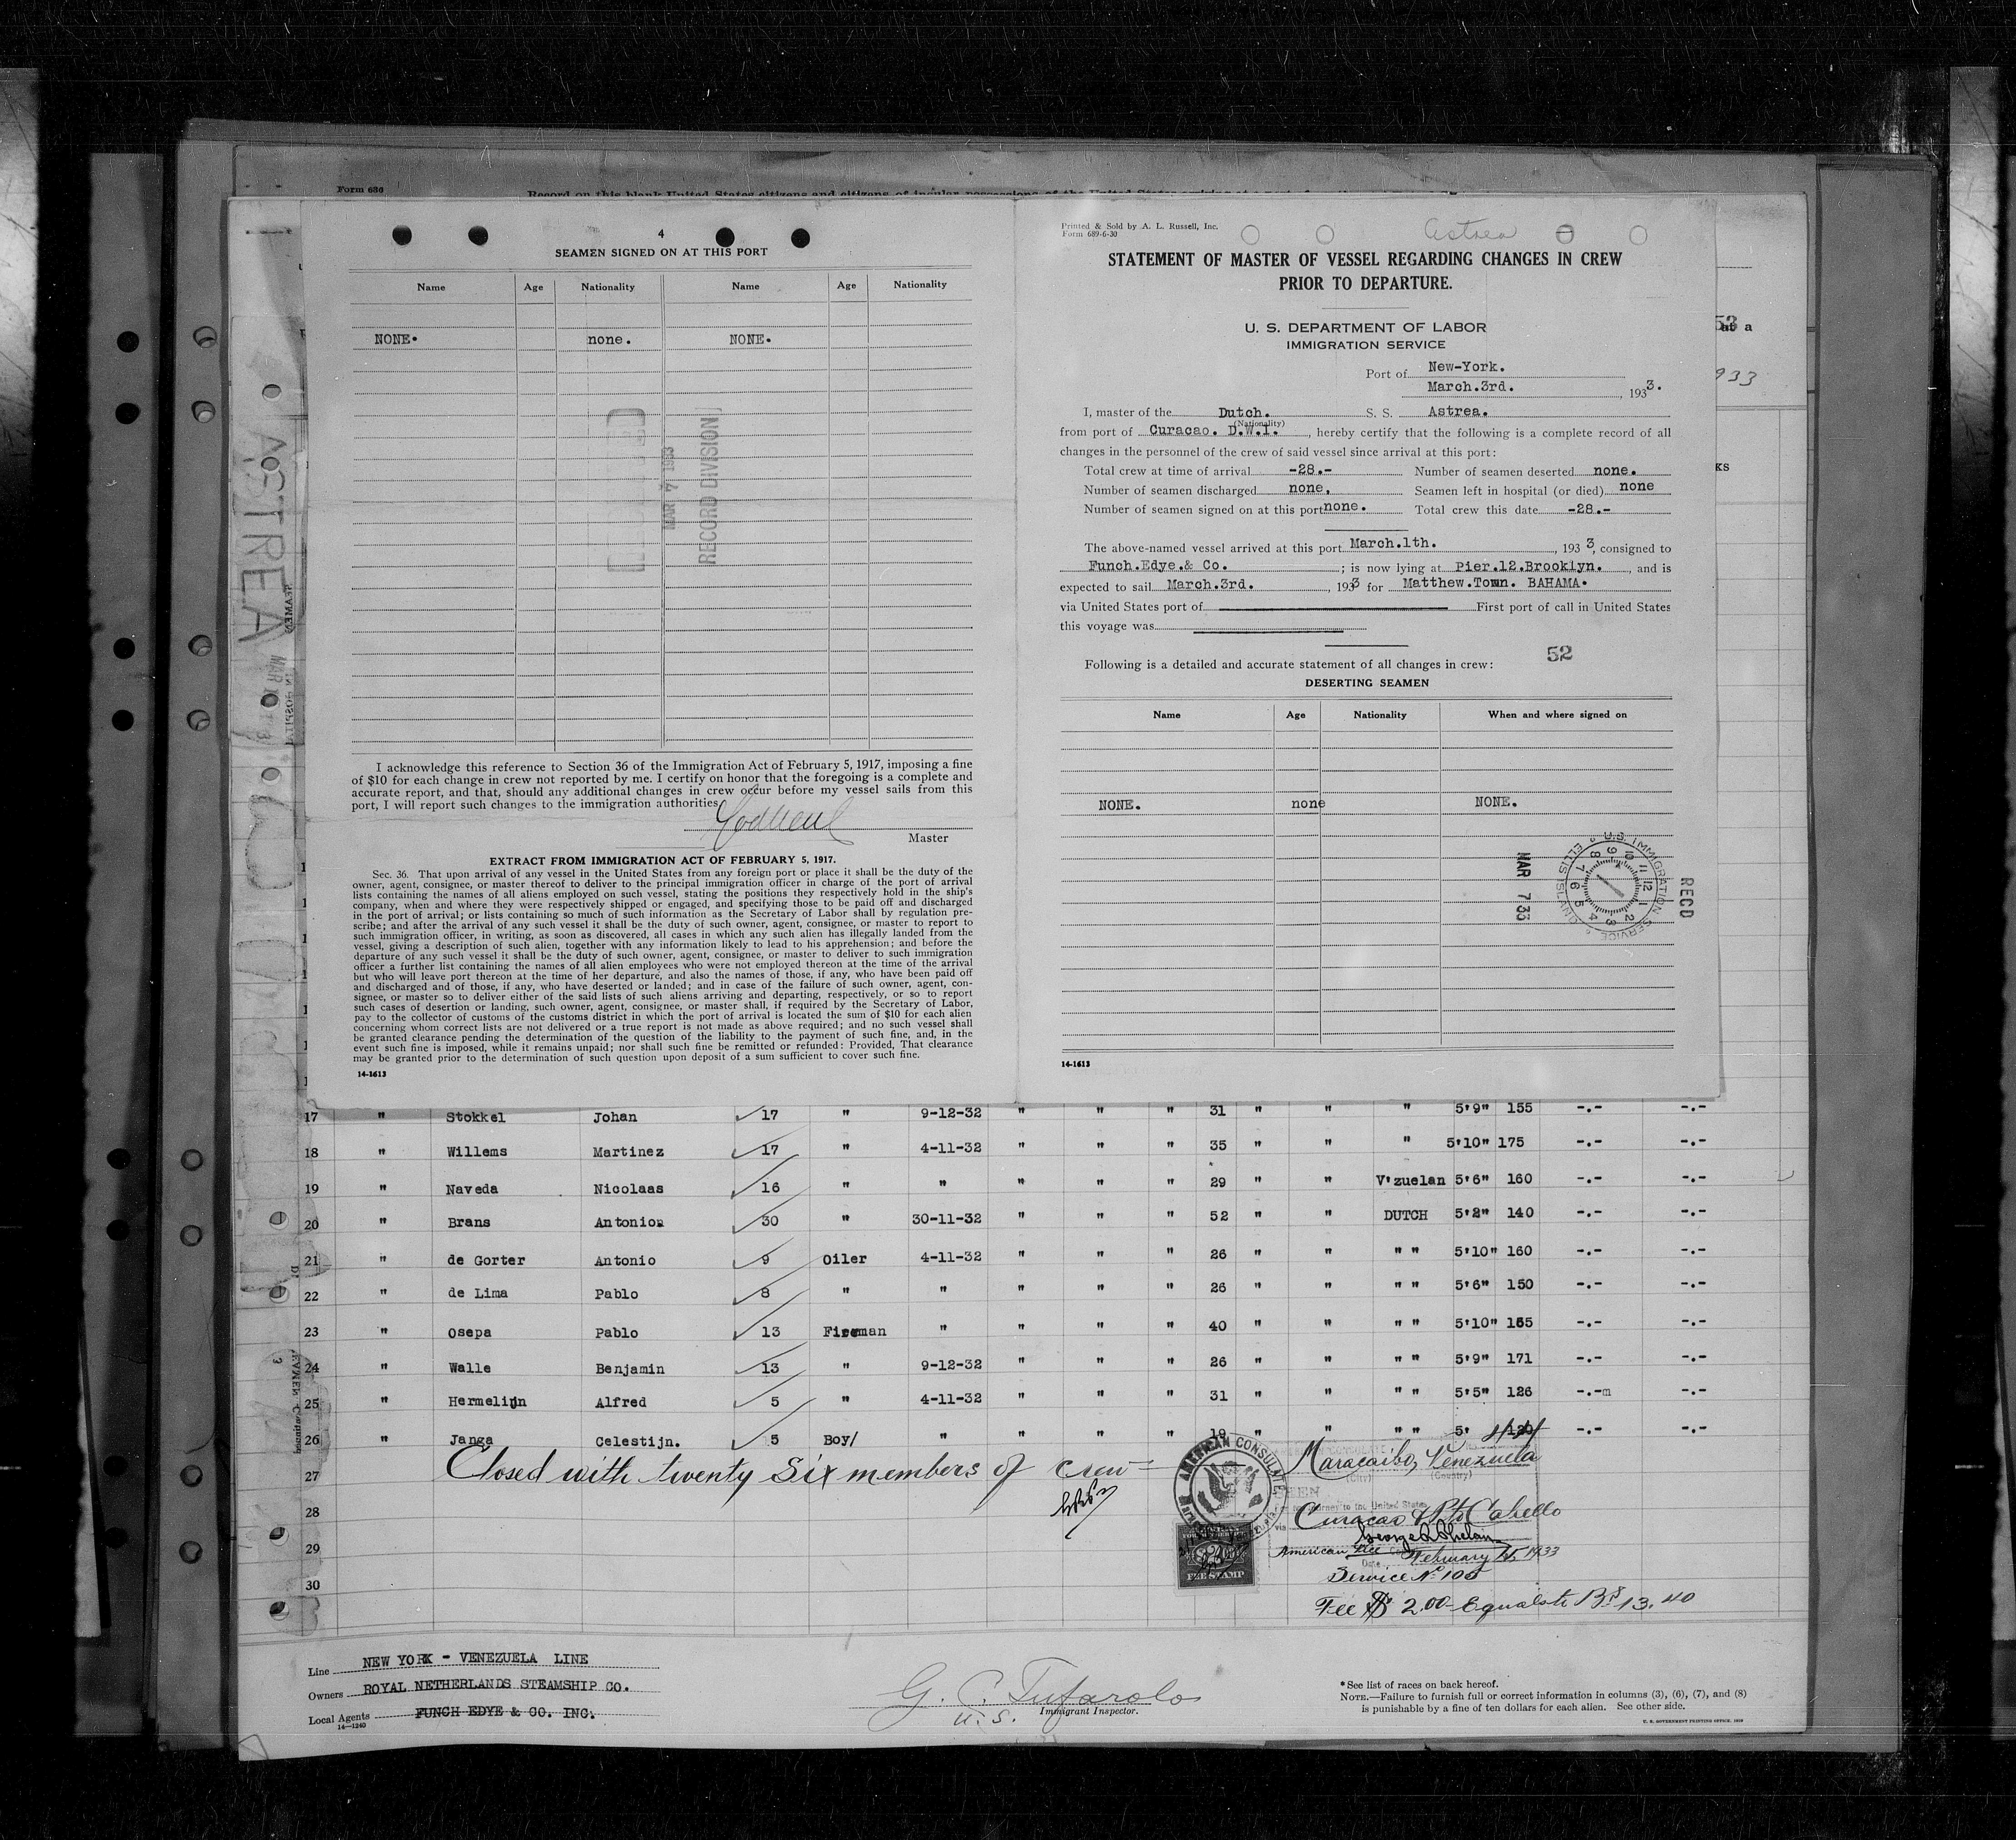 Form 686
Record on this blank United States citizens and citizens of insular possessions of the United States
4
SEAMEN SIGNED ON AT THIS PORT
Name Age Nationality Name Age Nationality
NONE. none. NONE.
MAR 7 1933
RECORD DIVISION
I acknowledge this reference to Section 36 of the Immigration Act of February 5, 1917, imposing a fine
of $10 for each change in crew not reported by me. I certify on honor that the foregoing is a complete and
accurate report, and that, should any additional changes in crew occur before my vessel sails from this
port, I will report such changes to the immigration authorities
Master
EXTRACT FROM IMMIGRATION ACT OF FEBRUARY 5, 1917.
Sec. 36. That upon arrival of any vessel in the United States from any foreign port or place it shall be the duty of the
owner, agent, consignee, or master thereof to deliver to the principal immigration officer in charge of the port of arrival
lists containing the names of all aliens employed on such vessel, stating the positions they respectively hold in the ship's
company, when and where they were respectively shipped or engaged, and specifying those to be paid off and discharged
in the port of arrival; or lists containing so much of such information as the Secretary of Labor shall by regulation pre-
scribe; and after the arrival of any such vessel it shall be the duty of such owner, agent, consignee, or master to report to
such immigration officer, in writing, as soon as discovered, all cases in which any such alien has illegally landed from the
vessel, giving a description of such alien, together with any information likely to lead to his apprehension; and before the
departure of any such vessel it shall be the duty of such owner, agent, consignee, or master to deliver to such immigration
officer a further list containing the names of all alien employees who were not employed thereon at the time of the arrival
but who will leave port thereon at the time of her departure, and also the names of those, if any, who have been paid off
and discharged and of those, if any, who have deserted or landed; and in case of the failure of such owner, agent, con-
signee, or master so to deliver either of the said lists of such aliens arriving and departing, respectively, or so to report
such cases of desertion or landing, such owner, agent, consignee, or master shall, if required by the Secretary of Labor,
pay to the collector of customs of the customs district in which the port of arrival is located the sum of $10 for each alien
concerning whom correct lists are not delivered or a true report is not made as above required; and no such vessel shall
be granted clearance pending the determination of the question of the liability to the payment of such fine, and, in the
event such fine is imposed, while it remains unpaid; nor shall such fine be remitted or refunded: Provided, That clearance
may be granted prior to the determination of such question upon deposit of a sum sufficient to cover such fine.
14-1613
Printed & Sold by A. L. Russell, Inc.
Form 689-6-30
Astrea
STATEMENT OF MASTER OF VESSEL REGARDING CHANGES IN CREW
PRIOR TO DEPARTURE.
U. S. DEPARTMENT OF LABOR
IMMIGRATION SERVICE
Port of New-York.
March.3rd. , 1933.
I, master of the Dutch. S. S. Astrea.
(Nationality)
from port of Curacao. D.W.I. , hereby certify that the following is a complete record of all
changes in the personnel of the crew of said vessel since arrival at this port:
Total crew at time of arrival -28.- Number of seamen deserted none.
Number of seamen discharged none. Seamen left in hospital (or died) none
Number of seamen signed on at this port none. Total crew this date -28.-
The above-named vessel arrived at this port March.1th. , 1933, consigned to
Funch.Edye.& Co. ; is now lying at Pier.12.Brooklyn. , and is
expected to sail March.3rd. , 1933 for Matthew.Town. BAHAMA.
via United States port of First port of call in United States
this voyage was
Following is a detailed and accurate statement of all changes in crew: 52
DESERTING SEAMEN
Name Age Nationality When and where signed on
NONE. none NONE.
RECD
U.S. IMMIGRATION SERVICE
ELLIS ISLAND
MAR 7 33
14-1613
53 at a
933
KS
ASTREA
17 " Stokkel Johan 17 " 9-12-32 " " " 31 " " " 5'9" 155 -.- -.-
18 " Willems Martinez 17 " 4-11-32 " " " 35 " " " 5'10" 175 -.- -.-
19 " Naveda Nicolaas 16 " " " " " 29 " " V'zuelan 5'6" 160 -.- -.-
20 " Brans Antonio 30 " 30-11-32 " " " 52 " " DUTCH 5'2" 140 -.- -.-
21 " de Gorter Antonio 9 Oiler 4-11-32 " " " 26 " " " " 5'10" 160 -.- -.-
22 " de Lima Pablo 8 " " " " " 26 " " " " 5'6" 150 -.- -.-
23 " Osepa Pablo 13 Fireman " " " " 40 " " " " 5'10" 165 -.- -.-
24 " Walle Benjamin 13 " 9-12-32 " " " 26 " " " " 5'9" 171 -.- -.-
25 " Hermelijn Alfred 5 " 4-11-32 " " " 31 " " " " 5'5" 126 -.-m -.-
26 " Janga Celestijn. 5 Boy/ " " " " 19 " " " " 5' -.- -.-
27 Closed with twenty Six members of crew
28
29
30
AMERICAN CONSULATE
FEE STAMP
Maracaibo, Venezuela
(City) (Country)
Curacao & Pto Cabello
George R Phelan
American Vice
February 15 1933
Service No 105
Fee $ 2.00 Equals to Bs 13.40
Line NEW YORK - VENEZUELA LINE
Owners ROYAL NETHERLANDS STEAMSHIP CO.
Local Agents FUNCH EDYE & CO. INC.
14—1240
G. C. Tufarolo
U.S. Immigrant Inspector.
*See list of races on back hereof.
NOTE.—Failure to furnish full or correct information in columns (3), (6), (7), and (8)
is punishable by a fine of ten dollars for each alien. See other side.
U. S. GOVERNMENT PRINTING OFFICE